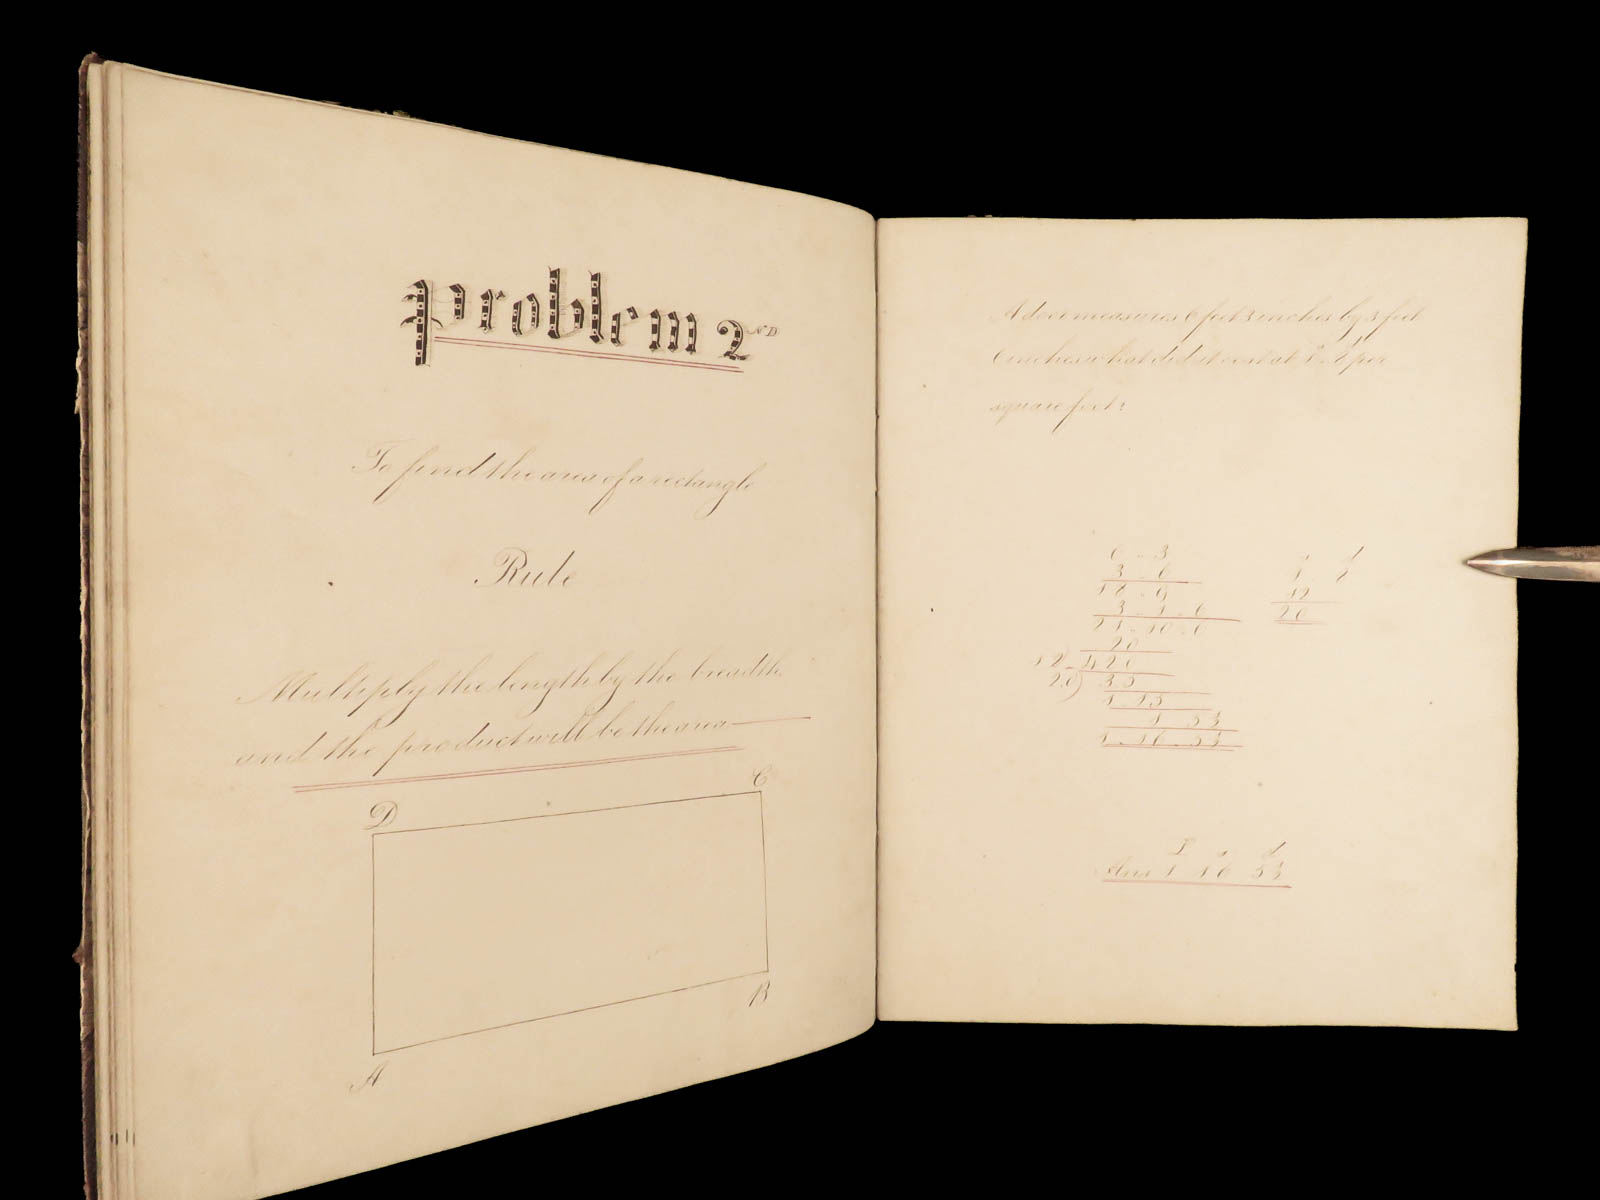 Problem 2ND
To find the area of a rectangle
Rule
Multiply the length by the breadth
and the product will be the area
D
C
B
A
A door measures 6 feet 3 inches by 3 feet
6 inches what did it cost at 1 8 per
square feet?
6 - 3
3 - 6
18 - 9
3 - 1 - 6
21 - 10 - 6
20
12 420
20) 35
1 - 15
s d
1 8
12
20
Ans